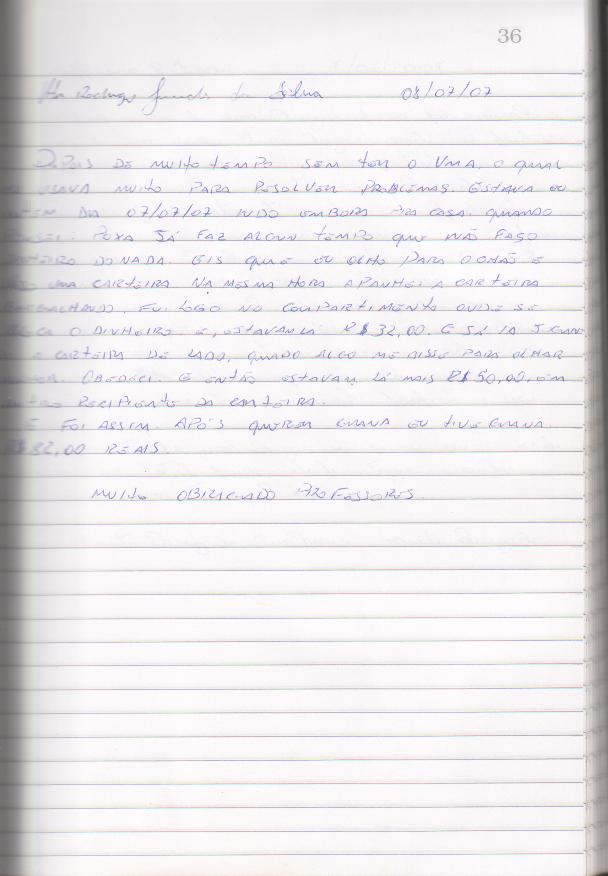 36
Rodrigo da Silva 08/07/07
DEPOIS DE MUITO TEMPO SEM TER O UMA, O QUAL
USAVA MUITO PARA RESOLVER PROBLEMAS. ESTAVA EU
DIA 07/07/07 INDO EMBORA PRA CASA. QUANDO
PENSEI. PUXA JÁ FAZ ALGUN TEMPO QUE NÃO FAÇO
DINHEIRO DO NADA. EIS QUE EU OLHO PARA O CHÃO E
UMA CARTEIRA NA MESMA HORA APANHEI A CARTEIRA
FUI LOGO NO COMPARTIMENTO ONDE SE
O DINHEIRO E, ESTAVAM LÁ R$ 32,00. E JÁ IA
A CARTEIRA DE LADO, QUADO ALGO ME DISSE PARA OLHAR
OBEDECI. E ENTÃO ESTAVAM LÁ MAIS R$ 50,00, EM
OUTRO RECIPIENTE DA CARTEIRA.
E FOI ASSIM. APÓS QUERER GRANA EU TIVE GRANA.
R$ 82,00 REAIS.
MUITO OBRIGADO PROFESSORES.